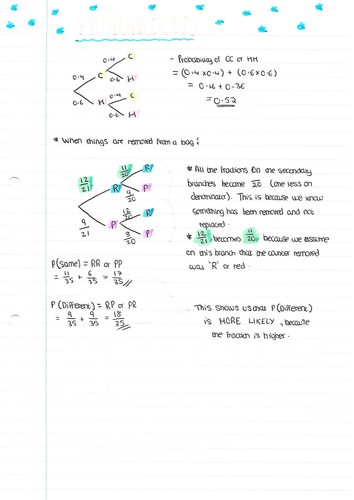 PROBABILITY
0.4 C
- Probability of CC or HH
0.4 C
= (0.4 x 0.4) + (0.6 x 0.6)
0.6 H
= 0.16 + 0.36
0.6 H 0.4 C
= 0.52
0.6 H
* When things are removed from a bag :
12/21 R 11/20 R
9/20 P
9/21 P 12/20 R
8/20 P
* All the fractions on the secondary
branches become /20 (one less on
denominator). This is because we know
something has been removed and not
replaced.
* 12/21 becomes 11/20 because we assume
on this branch that the counter removed
was 'R' or red.
P(Same) = RR or PP
= 11/35 + 6/35 = 17/35
P(Different) = RP or PR
= 9/35 + 9/35 = 18/35
This shows us that P(Different)
is MORE LIKELY, because
the fraction is higher.